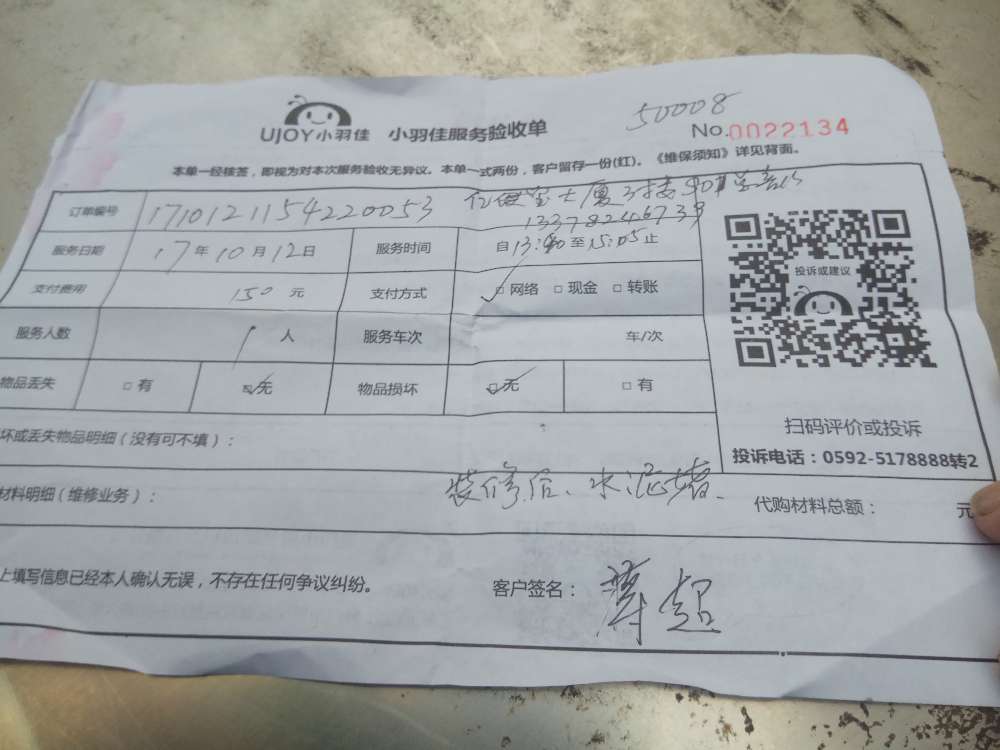 50008
UJOY小羽佳 小羽佳服务验收单 No.0022134
本单一经核签，即视为对本次服务验收无异议。本单一式两份，客户留存一份(红)。《维保须知》详见背面。
订单编号 1710121154220053
13378246739
服务日期 17年10月12日 服务时间 自13:40至15:05止
支付费用 150元 支付方式 网络 现金 转账
投诉或建议
服务人数 1人 服务车次 车/次
物品丢失 有 无 物品损坏 无 有
扫码评价或投诉
坏或丢失物品明细（没有可不填）：
投诉电话：0592-5178888转2
材料明细（维修业务）： 装修后、水泥堵、 代购材料总额： 元
上填写信息已经本人确认无误，不存在任何争议纠纷。 客户签名： 超